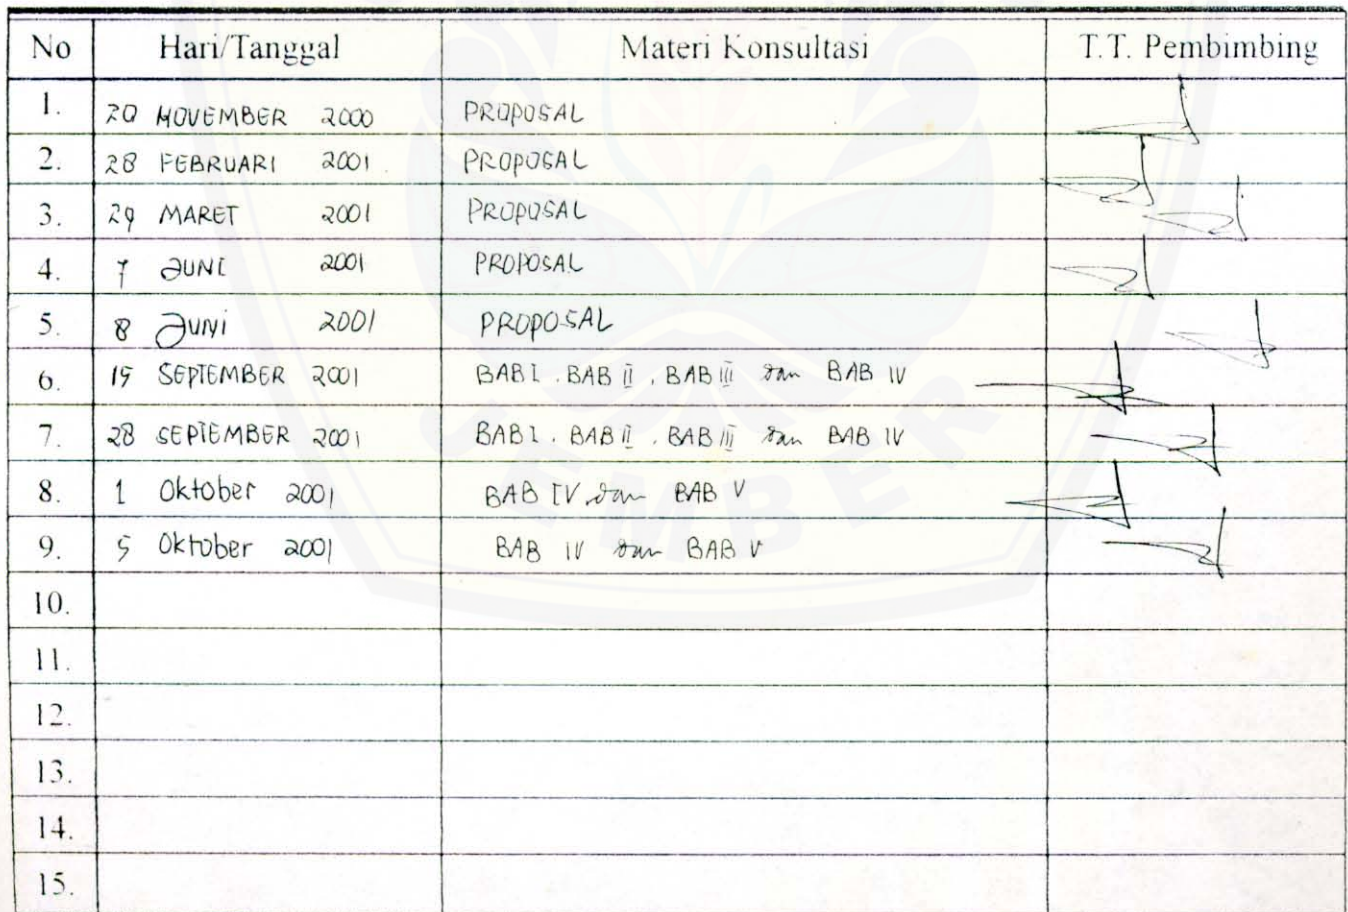 No Hari/Tanggal Materi Konsultasi T.T. Pembimbing
1. 20 NOVEMBER 2000 PROPOSAL
2. 28 FEBRUARI 2001 PROPOSAL
3. 29 MARET 2001 PROPOSAL
4. 7 JUNI 2001 PROPOSAL
5. 8 JUNI 2001 PROPOSAL
6. 15 SEPTEMBER 2001 BAB I, BAB II, BAB III dan BAB IV
7. 28 SEPTEMBER 2001 BAB I, BAB II, BAB III dan BAB IV
8. 1 Oktober 2001 BAB IV dan BAB V
9. 5 Oktober 2001 BAB IV dan BAB V
10.
11.
12.
13.
14.
15.
JEMBER